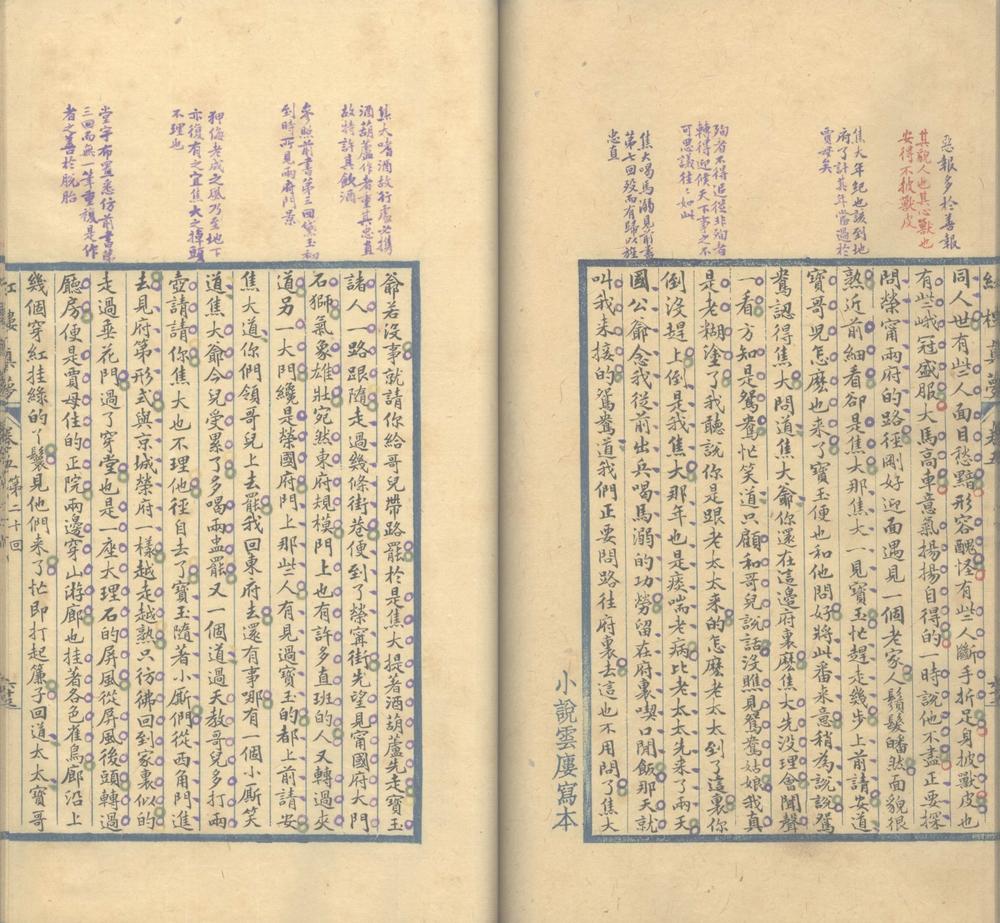 惡報多於善報
其觀人也其心獸也
安得不披獸皮
焦大年紀也該到地
府了計其年當過於
賈母矣
殉者不得追從非殉者
轉得迎候天下事之不
可思議往往如此
焦大喝馬溺見前書
第七回歿而有歸以旌
忠直
同人世有些人面目愁黯形容醜怪有些人斷手折足身披獸皮也
有些峨冠盛服大馬高車意氣揚揚自得的一時說他不盡正要探
問榮甯兩府的路徑剛好迎面遇見一個老家人鬚髮皤然面貌很
熟近前細看卻是焦大那焦大一見寶玉忙趕走幾步上前請安道
寶哥兒怎麽也來了寶玉便也和他問好將此番来意稍為說說鴛
鴦認得焦大問道焦大爺你還在這邊府裏麽焦大先没理會聞聲
一看方知是鴛鴦忙笑道只顧和哥兒說話沒瞧見鴛鴦姑娘我真
是老糊塗了我聽說你是跟老太太來的怎麽老太太到了這裏你
倒沒趕上倒是我焦大那年也是痰喘老病比老太太先来了兩天
國公爺念我從前出兵喝馬溺的功勞留在府裏喫口閒飯那天就
叫我来接的鴛鴦道我們正要問路往府裏去這也不用問了焦大
小說雲廔寫本
焦大嗜酒故行處必携
酒葫蘆作者重其忠直
故特許其飲酒
參照前書第三回黛玉初
到時所見兩府門景
狎侮老成之風乃至地下
亦復有之宜焦大之掉頭
不理也
堂宇布置悉仿前書第
三回而無一筆重複是作
者之善於脫胎
爺若沒事就請你給哥兒帶路罷於是焦大提著酒葫蘆先走寶玉
諸人一路跟隨走過幾條街巷便到了榮甯街先望見甯國府大門
石獅氣象雄壯宛然東府規模門上也有許多直班的人又轉過夾
道另一大門纔是榮國府門上那些人有見過寶玉的都上前請安
焦大道你們領哥兒上去罷我回東府去還有事哪有一個小厮笑
道焦大爺今兒受累了多喝兩盅罷又一個道過天教哥兒多打兩
壺請請你焦大也不理他徑自去了寶玉隨著小厮們從西角門進
去見府第形式與京城榮府一樣越走越熟只彷彿回到家裏似的
走過垂花門過了穿堂也是一座大理石的屏風從屏風後頭轉過
廳房便是賈母住的正院兩邊穿山游廊也挂著各色雀鳥廊沿上
幾個穿紅挂綠的丫鬟見他們來了忙即打起簾子回道太太寶哥
紅樓真夢 卷五 第二十回